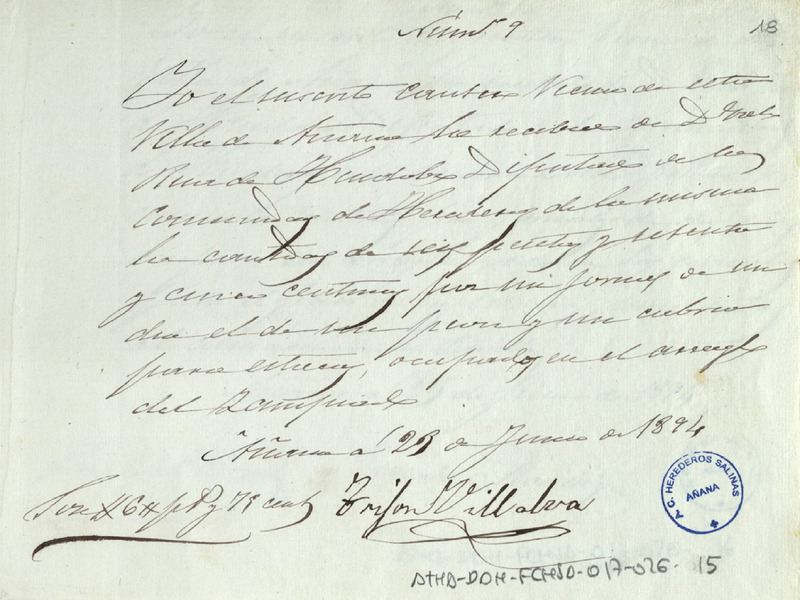 Núm.º 9
18
Yo el suscrito cantero vecino de esta
Villa de Añana he recibido de D.
Ruiz de Diputado de la
Comunidad de Herederos de la misma
la cantidad de seis pesetas y setenta
y cinco centimos por mi jornal de un
dia el de un peon y un
para ocupados en el arreglo
del
Añana a 23 de Junio de 1894
Son #6# pts y 75 cents
Trifon Villalva
C. HEREDEROS SALINAS
AÑANA
ATHA-DAH-FCHSA-017-026. 15